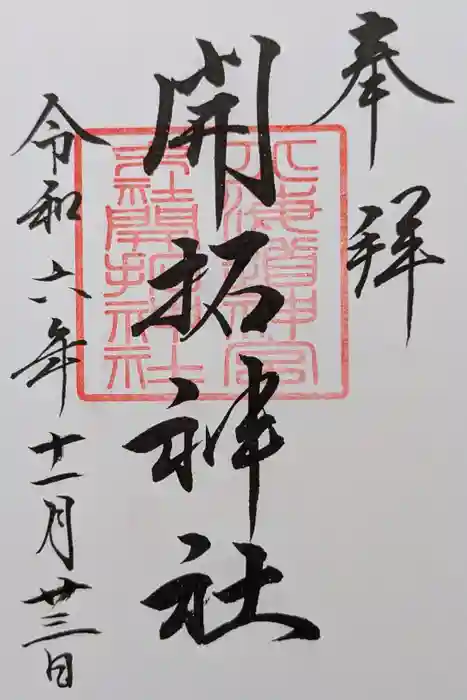 奉拜
開拓神社
令和六年十一月廿三日
北海道神宮
末社開拓神社